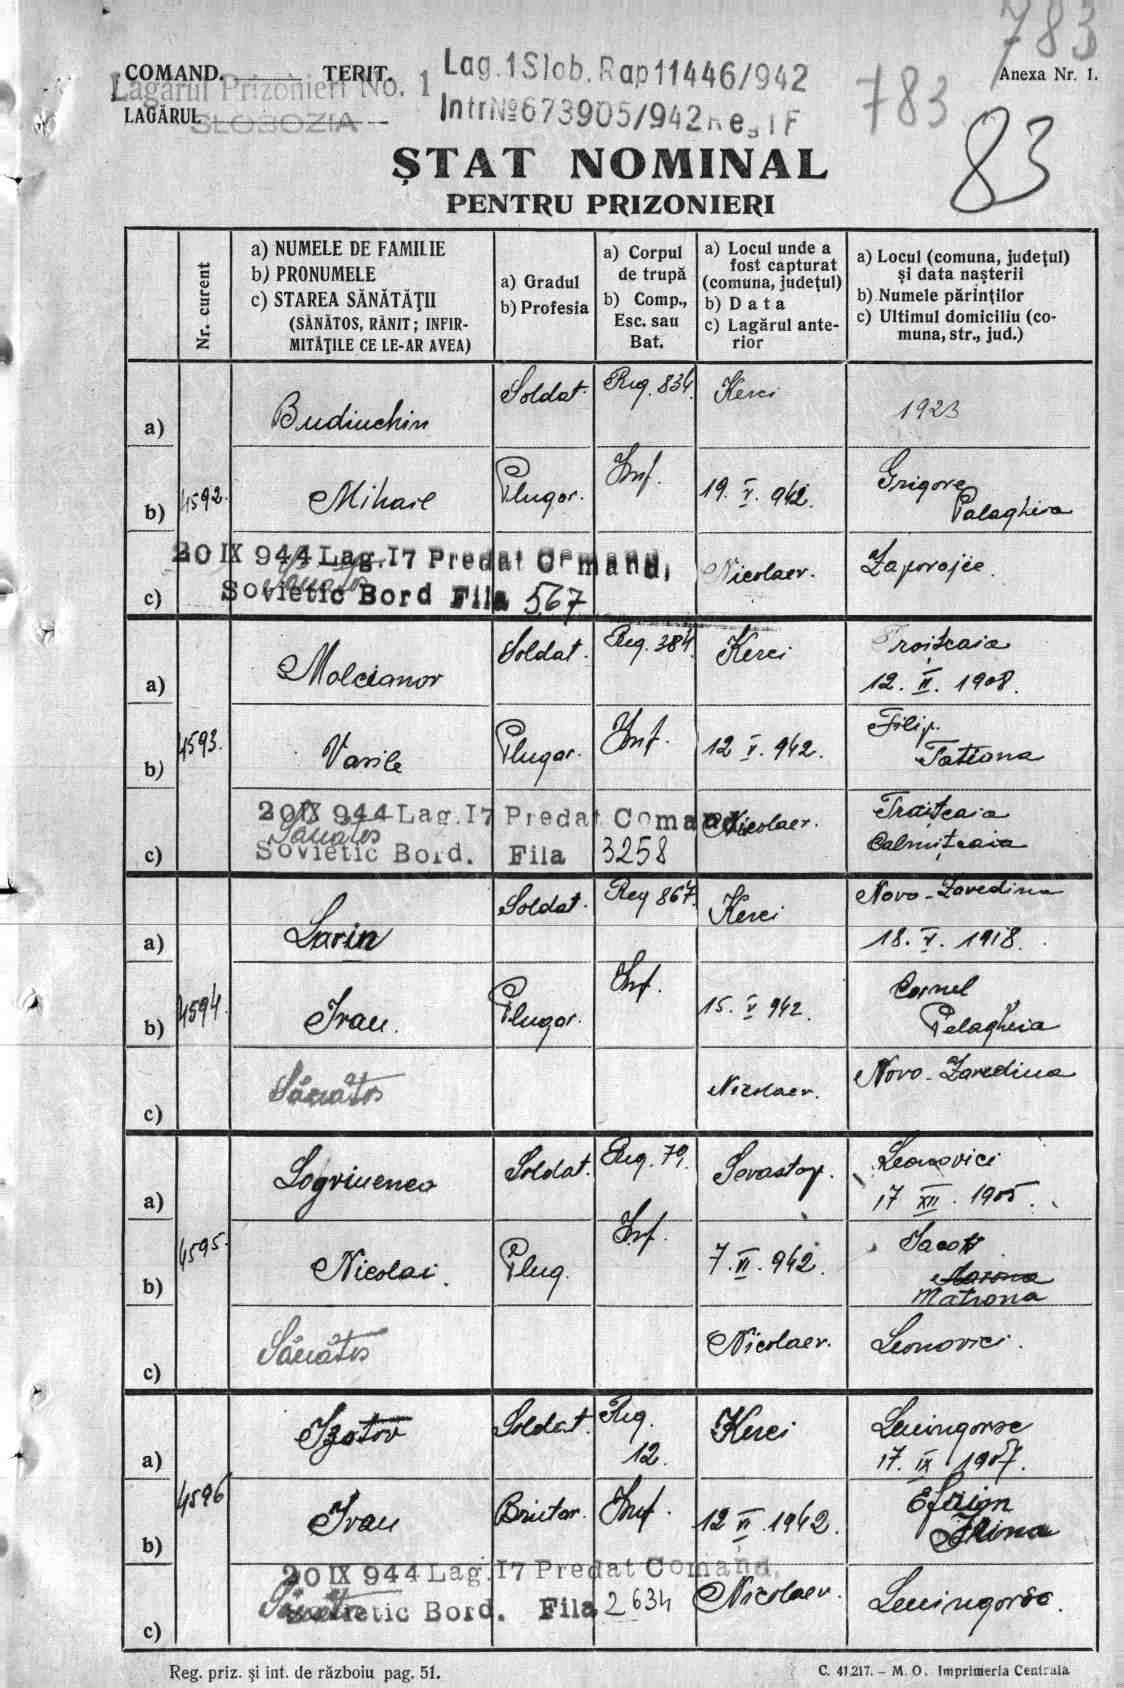 783
COMAND. TERIT.
Lagărul Prizonieri No. 1
LAGĂRUL
SLOBOZIA
Lag. 1 Slob. Rap 11446/942
Intr № 673905/942 Reg 1 F
783
Anexa Nr. 1.
83
ŞTAT NOMINAL
PENTRU PRIZONIERI
Nr. curent
a) NUMELE DE FAMILIE
b) PRONUMELE
c) STAREA SĂNĂTĂŢII
(SĂNĂTOS, RĂNIT; INFIR-
MITĂŢILE CE LE-AR AVEA)
a) Gradul
b) Profesia
a) Corpul
de trupă
b) Comp.,
Esc. sau
Bat.
a) Locul unde a
fost capturat
(comuna, judeţul)
b) Data
c) Lagărul ante-
rior
a) Locul (comuna, judeţul)
şi data naşterii
b) Numele părinţilor
c) Ultimul domiciliu (co-
muna, str., jud.)
4592.
a) Budiuchin Soldat. Reg. 834. Kerci 1923
b) Mihail Plugar. Inf. 19. V. 942. Grigore
Palaghira
c) Sănătos Nicolaev. Zaporojie.
20 IX 944 Lag. 17 Predat Comand,
Sovietic Bord Fila 567
4593.
a) Molcianov Soldat. Reg. 384 Kerci Troiţcaia
12. II. 1908.
b) Vasile Plugar. Inf. 12 V. 942. Filip.
Tatiana
c) Sănătos Nicolaev. Troiţcaia
Calmîţcaia
20 IX 944 Lag. 17 Predat Comand.
Sovietic Bord. Fila 3258
4594.
a) Larin Soldat. Reg 867. Kerci Novo-Zavedina
18. V. 1918.
b) Ivan. Plugar. Inf. 15. V 942. Cornel
Pelagheia
c) Sănătos Nicolaev. Novo-Zavedina
4595.
a) Logvinenco Soldat. Reg. 79. Sevastop. Leonovici
17 XII. 1905.
b) Nicolai. Plug. Inf. 7. VI. 942. Iacov
Matrona
c) Sănătos Nicolaev. Leonovici.
4596
a) Izotov Soldat. Reg. 12. Kerci Leningorsc
17. IX 1907.
b) Ivan Inf. 12 VI. 1942. Efrion
Irina
c) Sănătos Nicolaev. Leningorsc.
20 IX 944 Lag. 17 Predat Comand.
Sovietic Bord. Fila 2634
Reg. priz. şi int. de război pag. 51.
C. 41.217. – M. O. Imprimeria Centrala